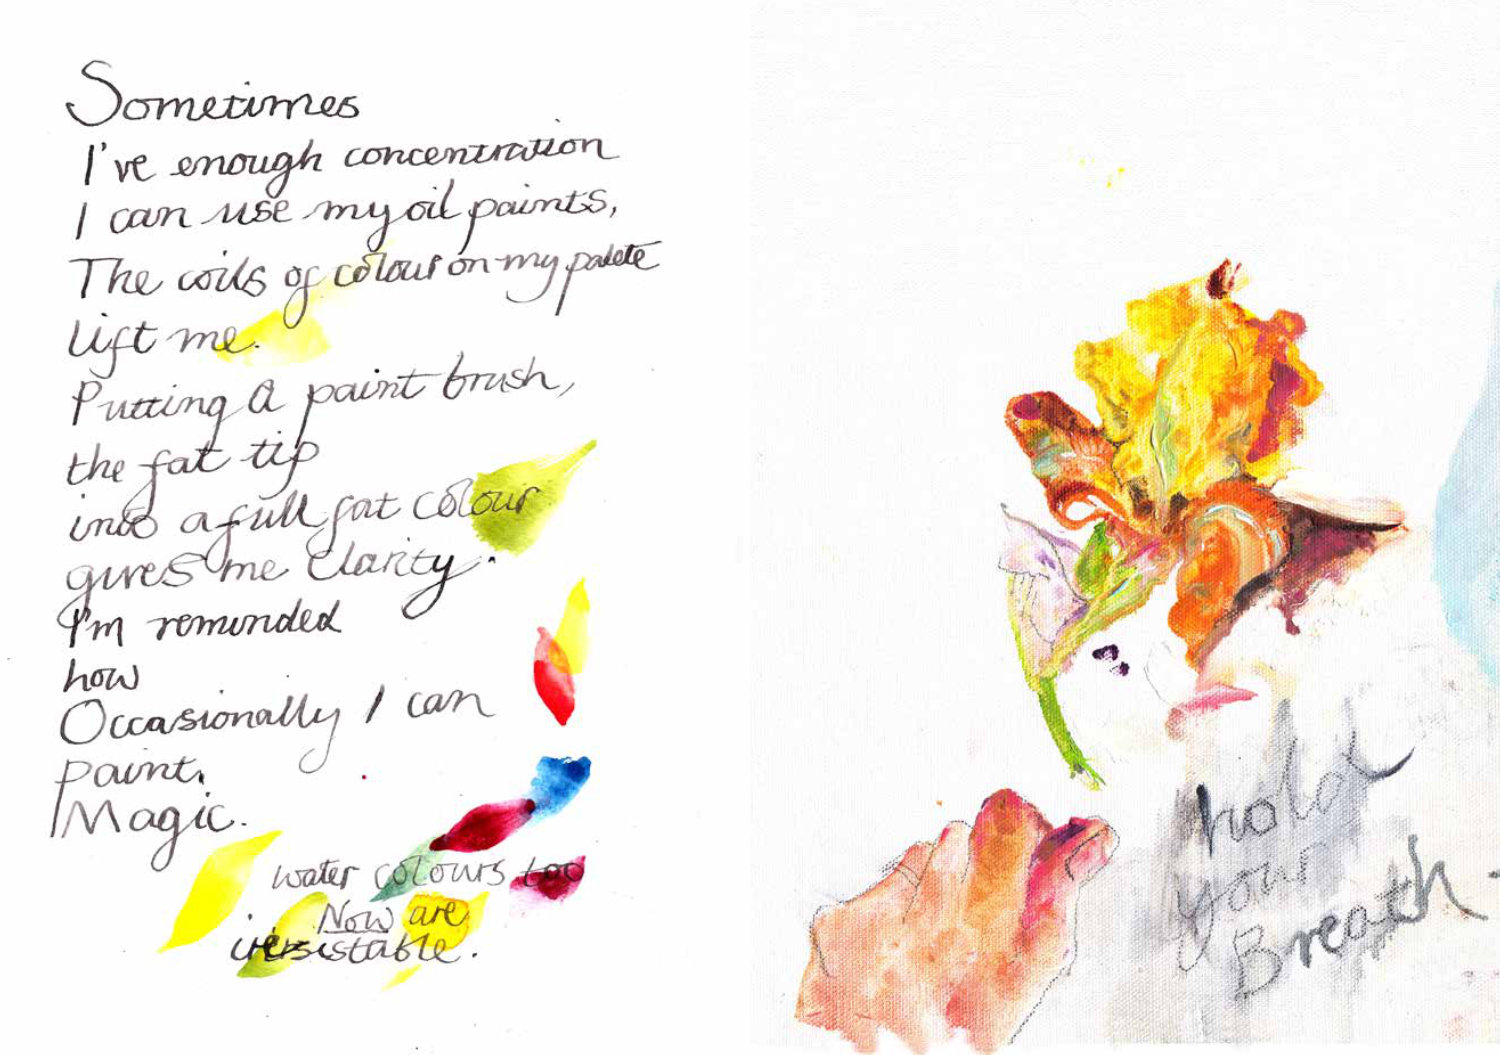 Sometimes
I've enough concentration
I can use my oil paints,
The coils of colour on my palete
lift me.
Putting a paint brush,
the fat tip
into a full fat colour
gives me clarity.
I'm reminded
how
Occasionally I can
paint.
Magic.
water colours too
Now are
irresistable.
hold
your
Breath